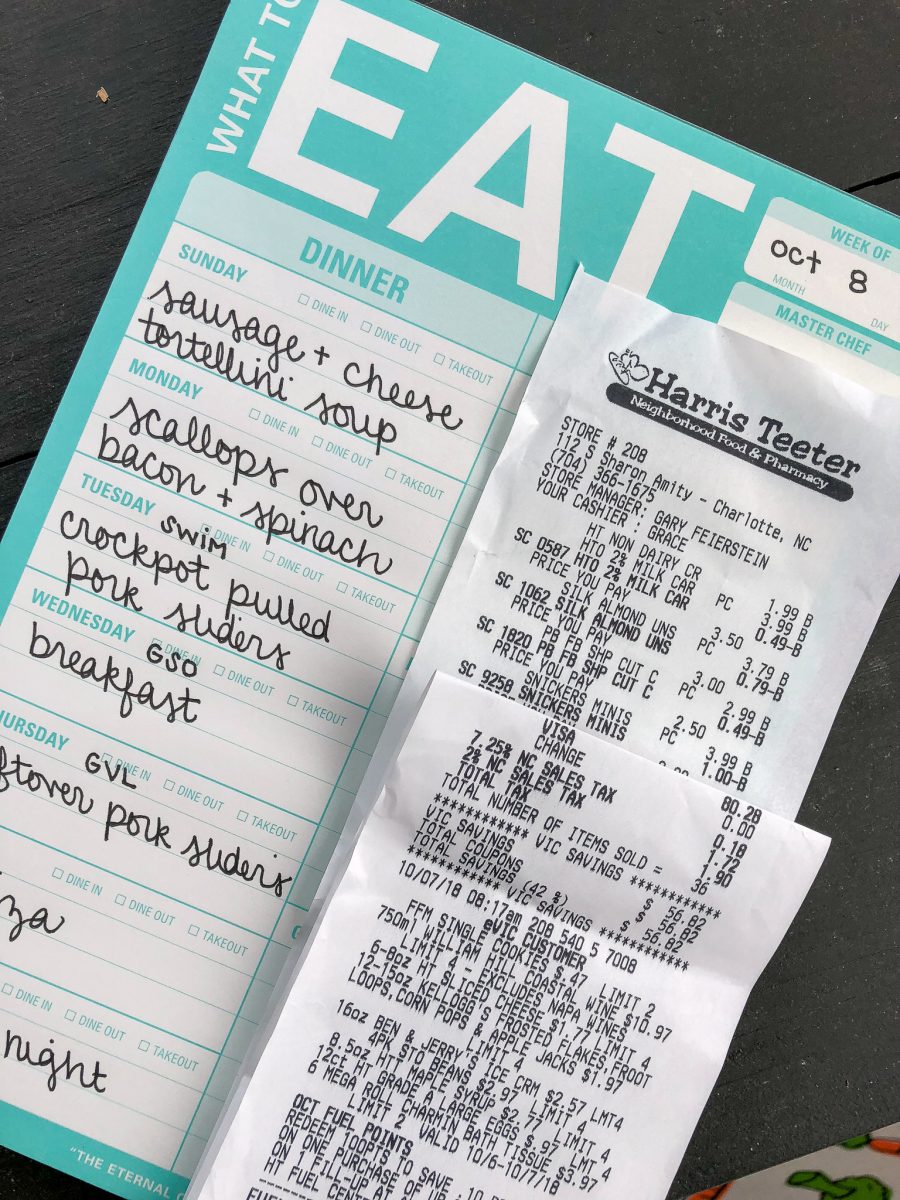 WHAT TO
EAT
WEEK OF
oct 8
MONTH DAY
MASTER CHEF
DINNER
SUNDAY
DINE IN DINE OUT TAKEOUT
sausage + cheese
tortellini soup
MONDAY
DINE IN DINE OUT TAKEOUT
scallops over
bacon + spinach
TUESDAY
swim
DINE IN DINE OUT TAKEOUT
crockpot pulled
pork sliders
WEDNESDAY
GSO
DINE IN DINE OUT TAKEOUT
breakfast
HURSDAY
GVL
DINE IN DINE OUT TAKEOUT
ftover pork sliders
DINE IN DINE OUT TAKEOUT
za
DINE IN DINE OUT TAKEOUT
night
"THE ETERNAL
Harris Teeter
Neighborhood Food & Pharmacy
STORE # 208
112 S Sharon Amity - Charlotte, NC
(704) 366-1675
STORE MANAGER: GARY FEIERSTEIN
YOUR CASHIER : GRACE
HT NON DAIRY CR 1.99 B
HTO 2% MILK CAR 3.99 B
SC 0587 HTO 2% MILK CAR 0.49-B
PRICE YOU PAY PC 3.50
SILK ALMOND UNS 3.79 B
SC 1062 SILK ALMOND UNS 0.79-B
PRICE YOU PAY PC 3.00
PB FB SHP CUT C 2.99 B
SC 1820 PB FB SHP CUT C 0.49-B
PRICE YOU PAY PC 2.50
SNICKERS MINIS 3.99 B
SC 9258 SNICKERS MINIS 1.00-B
VISA 80.28
CHANGE 0.00
7.25% NC SALES TAX 0.18
2% NC SALES TAX 1.72
TOTAL TAX 1.90
TOTAL NUMBER OF ITEMS SOLD = 36
************ VIC SAVINGS ************
VIC SAVINGS $ 56.82
TOTAL COUPONS $ 56.82
TOTAL SAVINGS (42 %) $ 56.82
************ VIC SAVINGS ************
10/07/18 08:17am 208 540 5 7008
eVIC CUSTOMER
FFM SINGLE COOKIES $.47 LIMIT 2
750ml WILLIAM HILL COASTAL WINE $10.97
LIMIT 4 - EXCLUDES NAPA WINES
6-8oz HT SLICED CHEESE $1.77 LIMIT 4
12-15oz KELLOGG'S FROSTED FLAKES,FROOT
LOOPS,CORN POPS & APPLE JACKS $1.97
LIMIT 4
16oz BEN & JERRY'S ICE CRM $2.57 LMT4
4PK STO BEANS $2.97 LIMIT 4
8.5oz HT MAPLE SYRUP $2.77 LIMIT 4
12ct HT GRADE A LARGE EGGS $.97 LMT 4
6 MEGA ROLL CHARMIN BATH TISSUE $3.97
LIMIT 2 VALID 10/6-10/7/18
OCT FUEL POINTS
REDEEM 100PTS TO SAVE
ON ONE PURCHASE OF UP
ON 1 FILL-UP AT
HT FUEL CENT